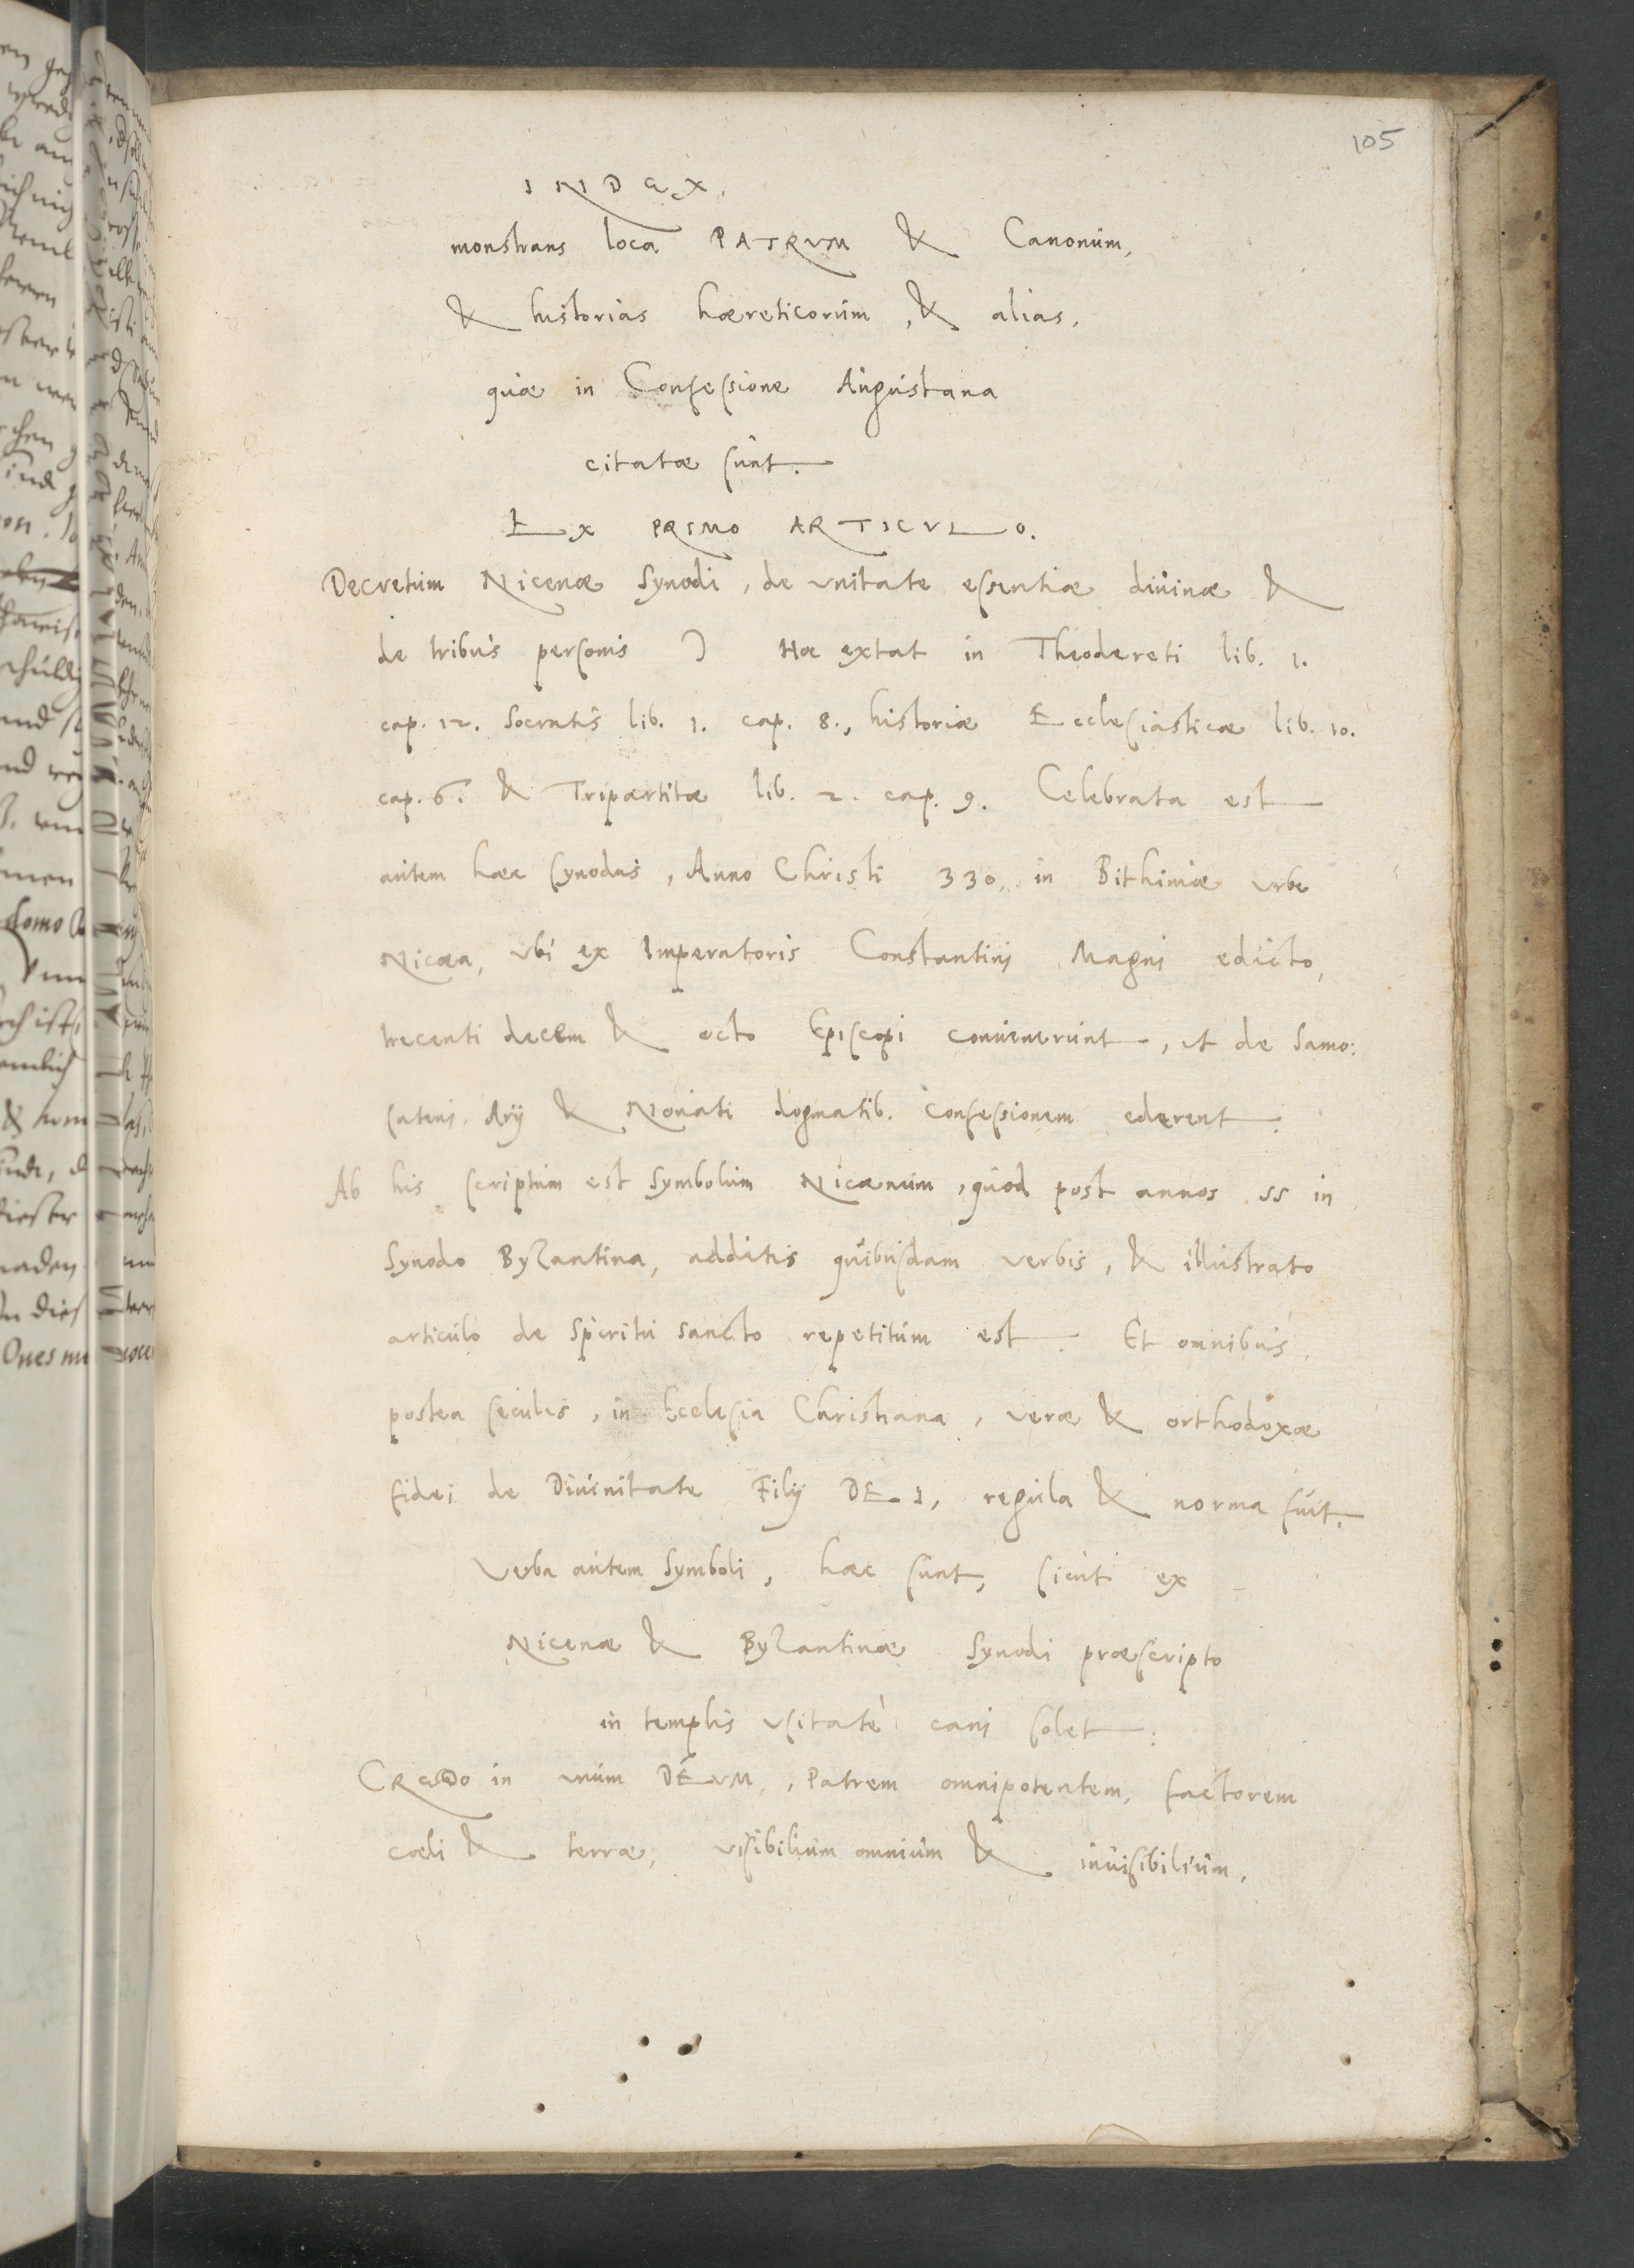 105
INDEX.
monstrans loca PATRVM & Canonum,
& historias hæreticorum, & alias,
quæ in Confessione Augustana
citatæ sunt.
EX PRIMO ARTICVLO.
Decretum Nicenæ Synodi, de vnitate essentiæ diuinæ &
de tribus personis ) Hæ extat in Theodereti lib. 1.
cap. 12. Socratis lib. 1. cap. 8., historiæ Ecclesiasticæ lib. 10.
cap. 6. & Tripartitæ lib. 2. cap. 9. Celebrata est
autem hæc synodus, Anno Christi 330. in Bithiniæ vrbe
Nicæa, vbi ex Imperatoris Constantini Magni edicto,
trecenti decem & octo Episcopi conuenerunt, ut de Samo:
sateni, Arij & Nouati dogmatib. confessionem ederent.
Ab his scriptum est Symbolum Nicænum, quod post annos 55 in
Synodo Byzantina, additis quibusdam verbis, & illustrato
articulo de Spiritu sancto repetitum est. Et omnibus
postea seculis, in Ecclesia Christiana, veræ & orthodoxæ
fidei de Diuinitate Filij DEI, regula & norma fuit.
Verba autem Symboli, hæc sunt, sicuti ex
Nicenæ & Byzantinæ Synodi præscripto
in templis vsitatè cani solet.
CREDO in unum DEVM, Patrem omnipotentem, factorem
cœli & terræ, visibilium omnium & inuisibilium,